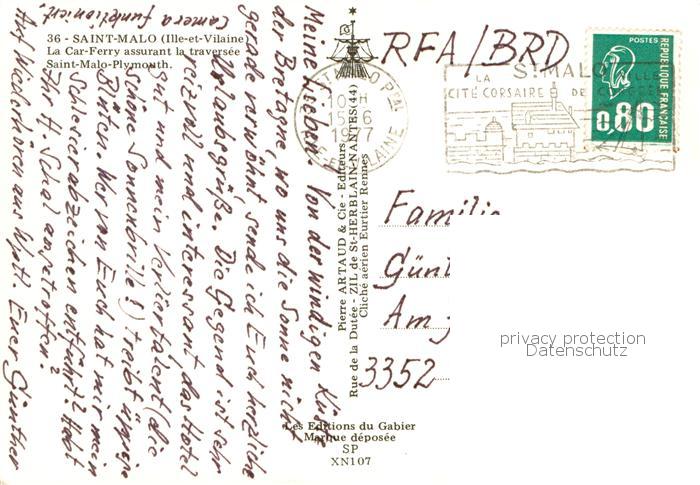 36 - SAINT-MALO (Ille-et-Vilaine)
La Car-Ferry assurant la traversée
Saint-Malo-Plymouth.
RFA/BRD
POSTES
REPUBLIQUE FRANÇAISE
0,80
10 H
15-6
1977
ILLE-ET-VILAINE
ST. MALO
LA
CITÉ CORSAIRE
DE
Meine Lieben! Von der windigen Küste
der Bretagne, wo uns die Sonne nicht
gerade verwöhnt, sende ich Euch herzliche
Urlaubsgrüße. Die Gegend ist sehr
reizvoll und interessant das Hotel
gut und mein Verliertalent (die
schöne Sonnenbrille!) treibt üppige
Blüten. Wer von Euch hat mir mein
Schlesierabzeichen entführt? Habt
Ihr H. Schal angetroffen?
Auf Wiederhören aus Euer Günther
camera funktioniert.
Pierre ARTAUD & Cie - Editeurs
Rue de la Dutée - ZIL de St-HERBLAIN-NANTES (44)
Cliché aérien Eurtier Rennes
Les Editions du Gabier
Marque déposée
SP
XN107
Familie
Günt
Am
3352
privacy protection
Datenschutz